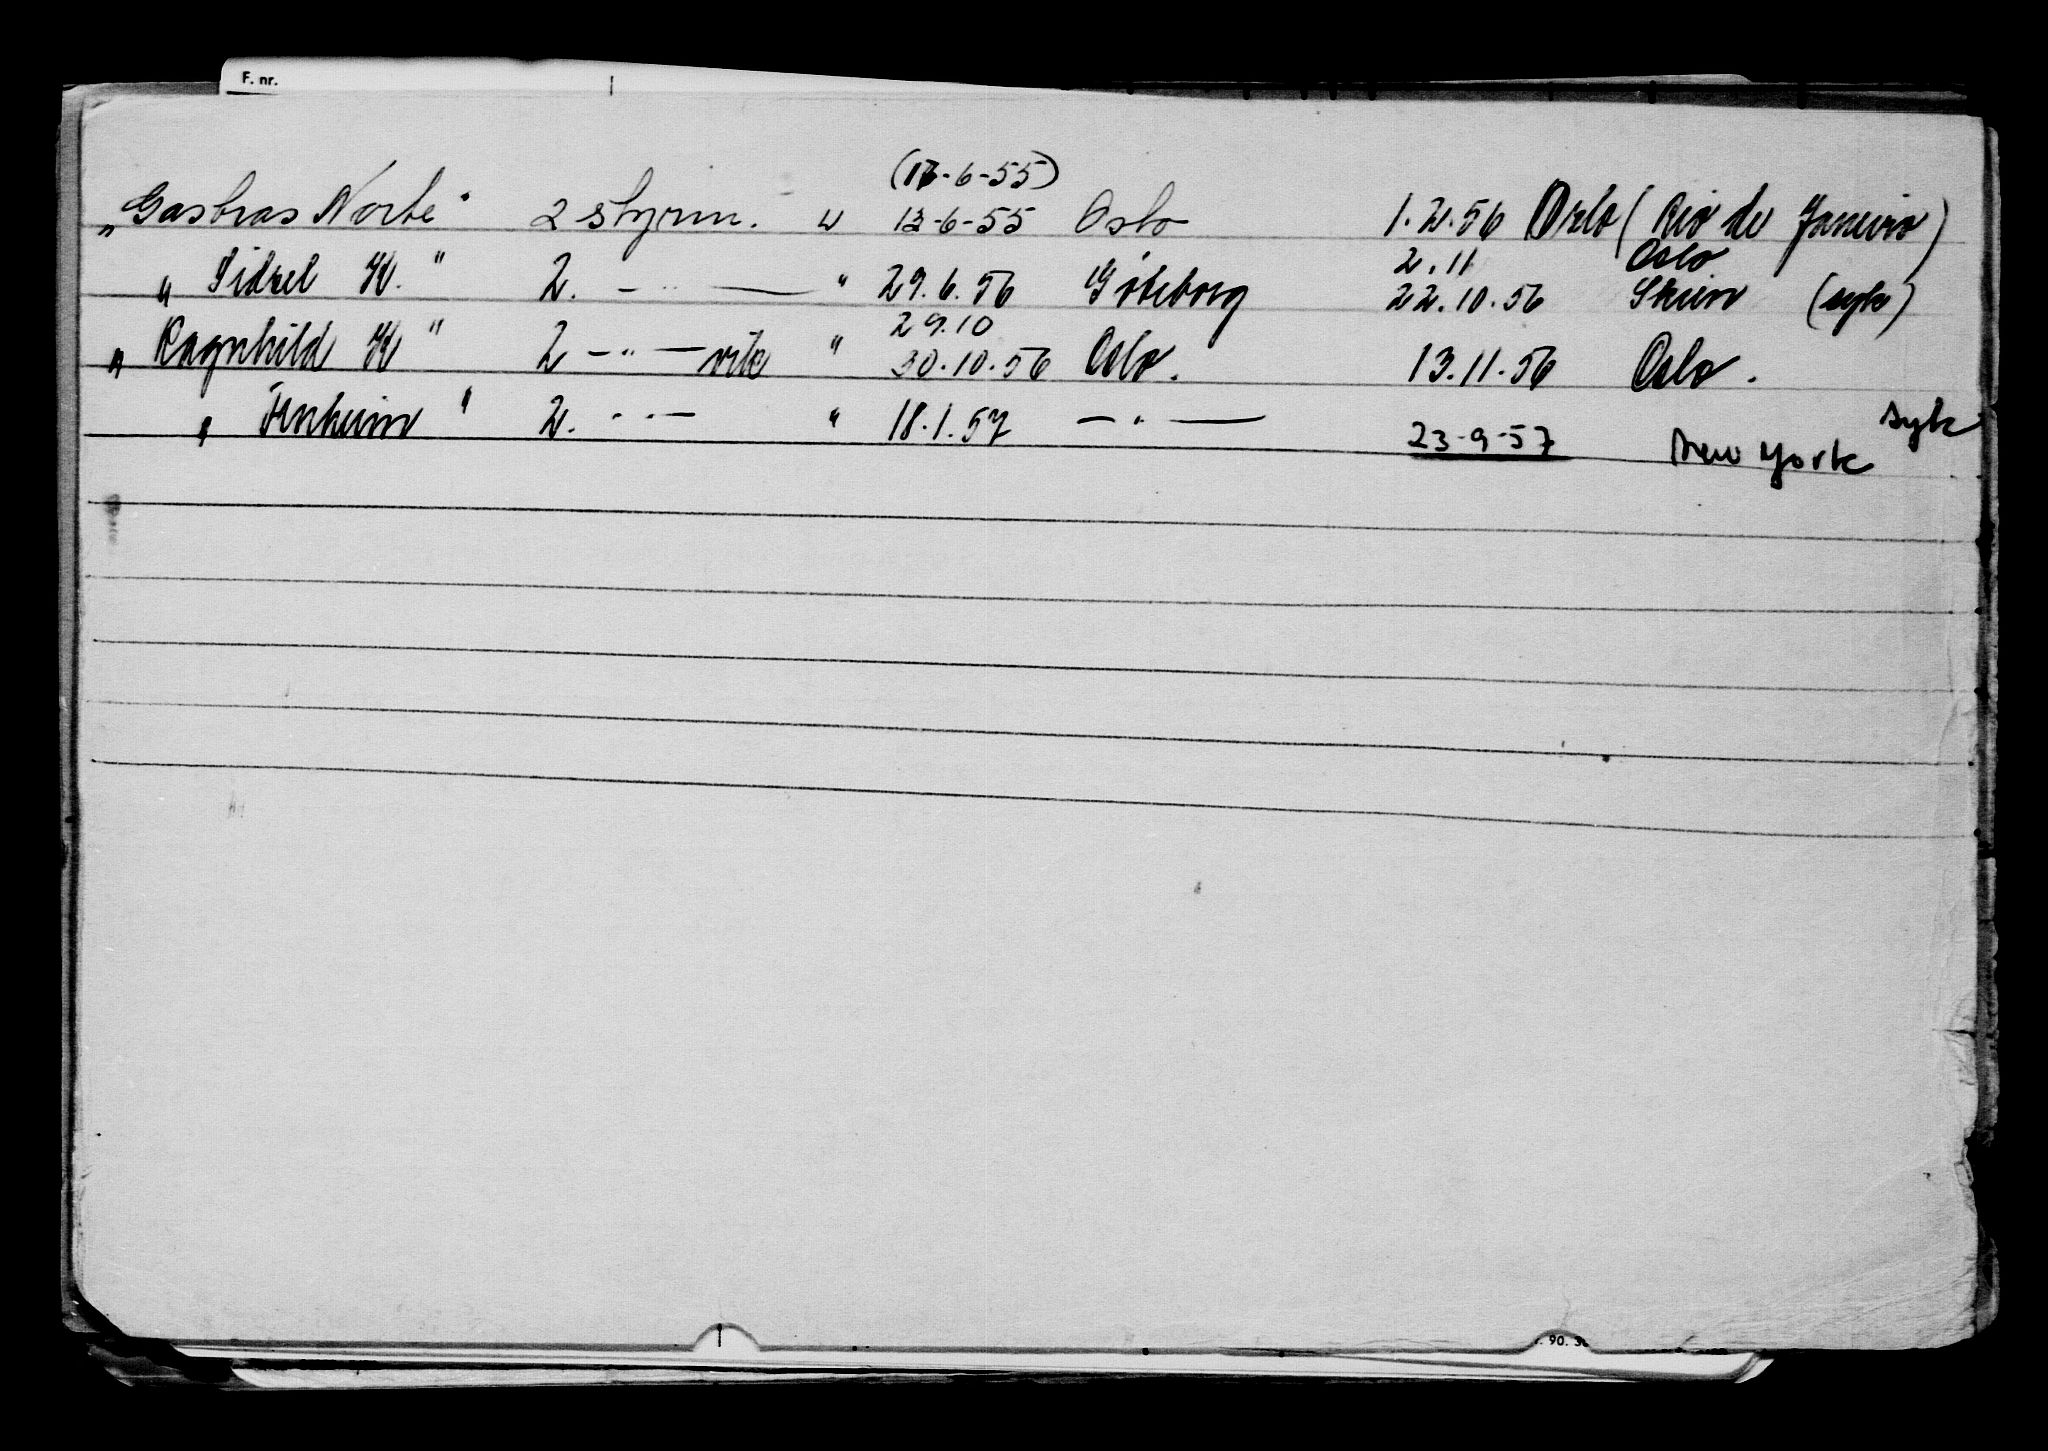 F. nr.
(17-6-55)
„Gasbras Norte" 2 styrm. u 13-6-55 Oslo 1.2.56 Oslo (Rio de Janeiro)
2.11 Oslo
„ Sidsel K. " 2. - " - " 29.6.56 Göteborg 22.10.56 Skien (syk)
29.10
„ Ragnhild K " 2 - " - vik " 30.10.56 Oslo. 13.11.56 Oslo.
„ " 2. - " - " 18.1.57 - " - 23-9-57 New York syk
. 90. 3